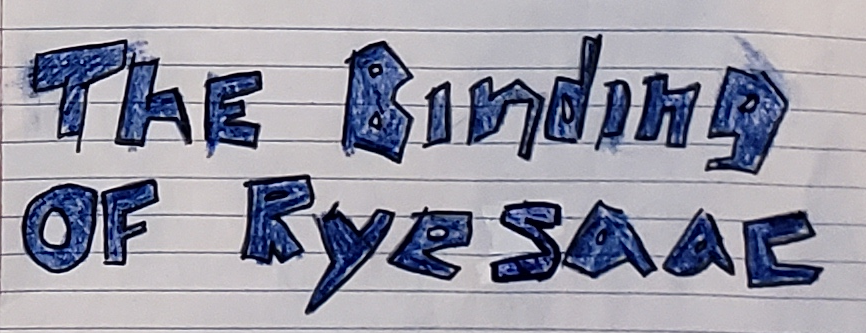 The Binding
OF Ryesaac